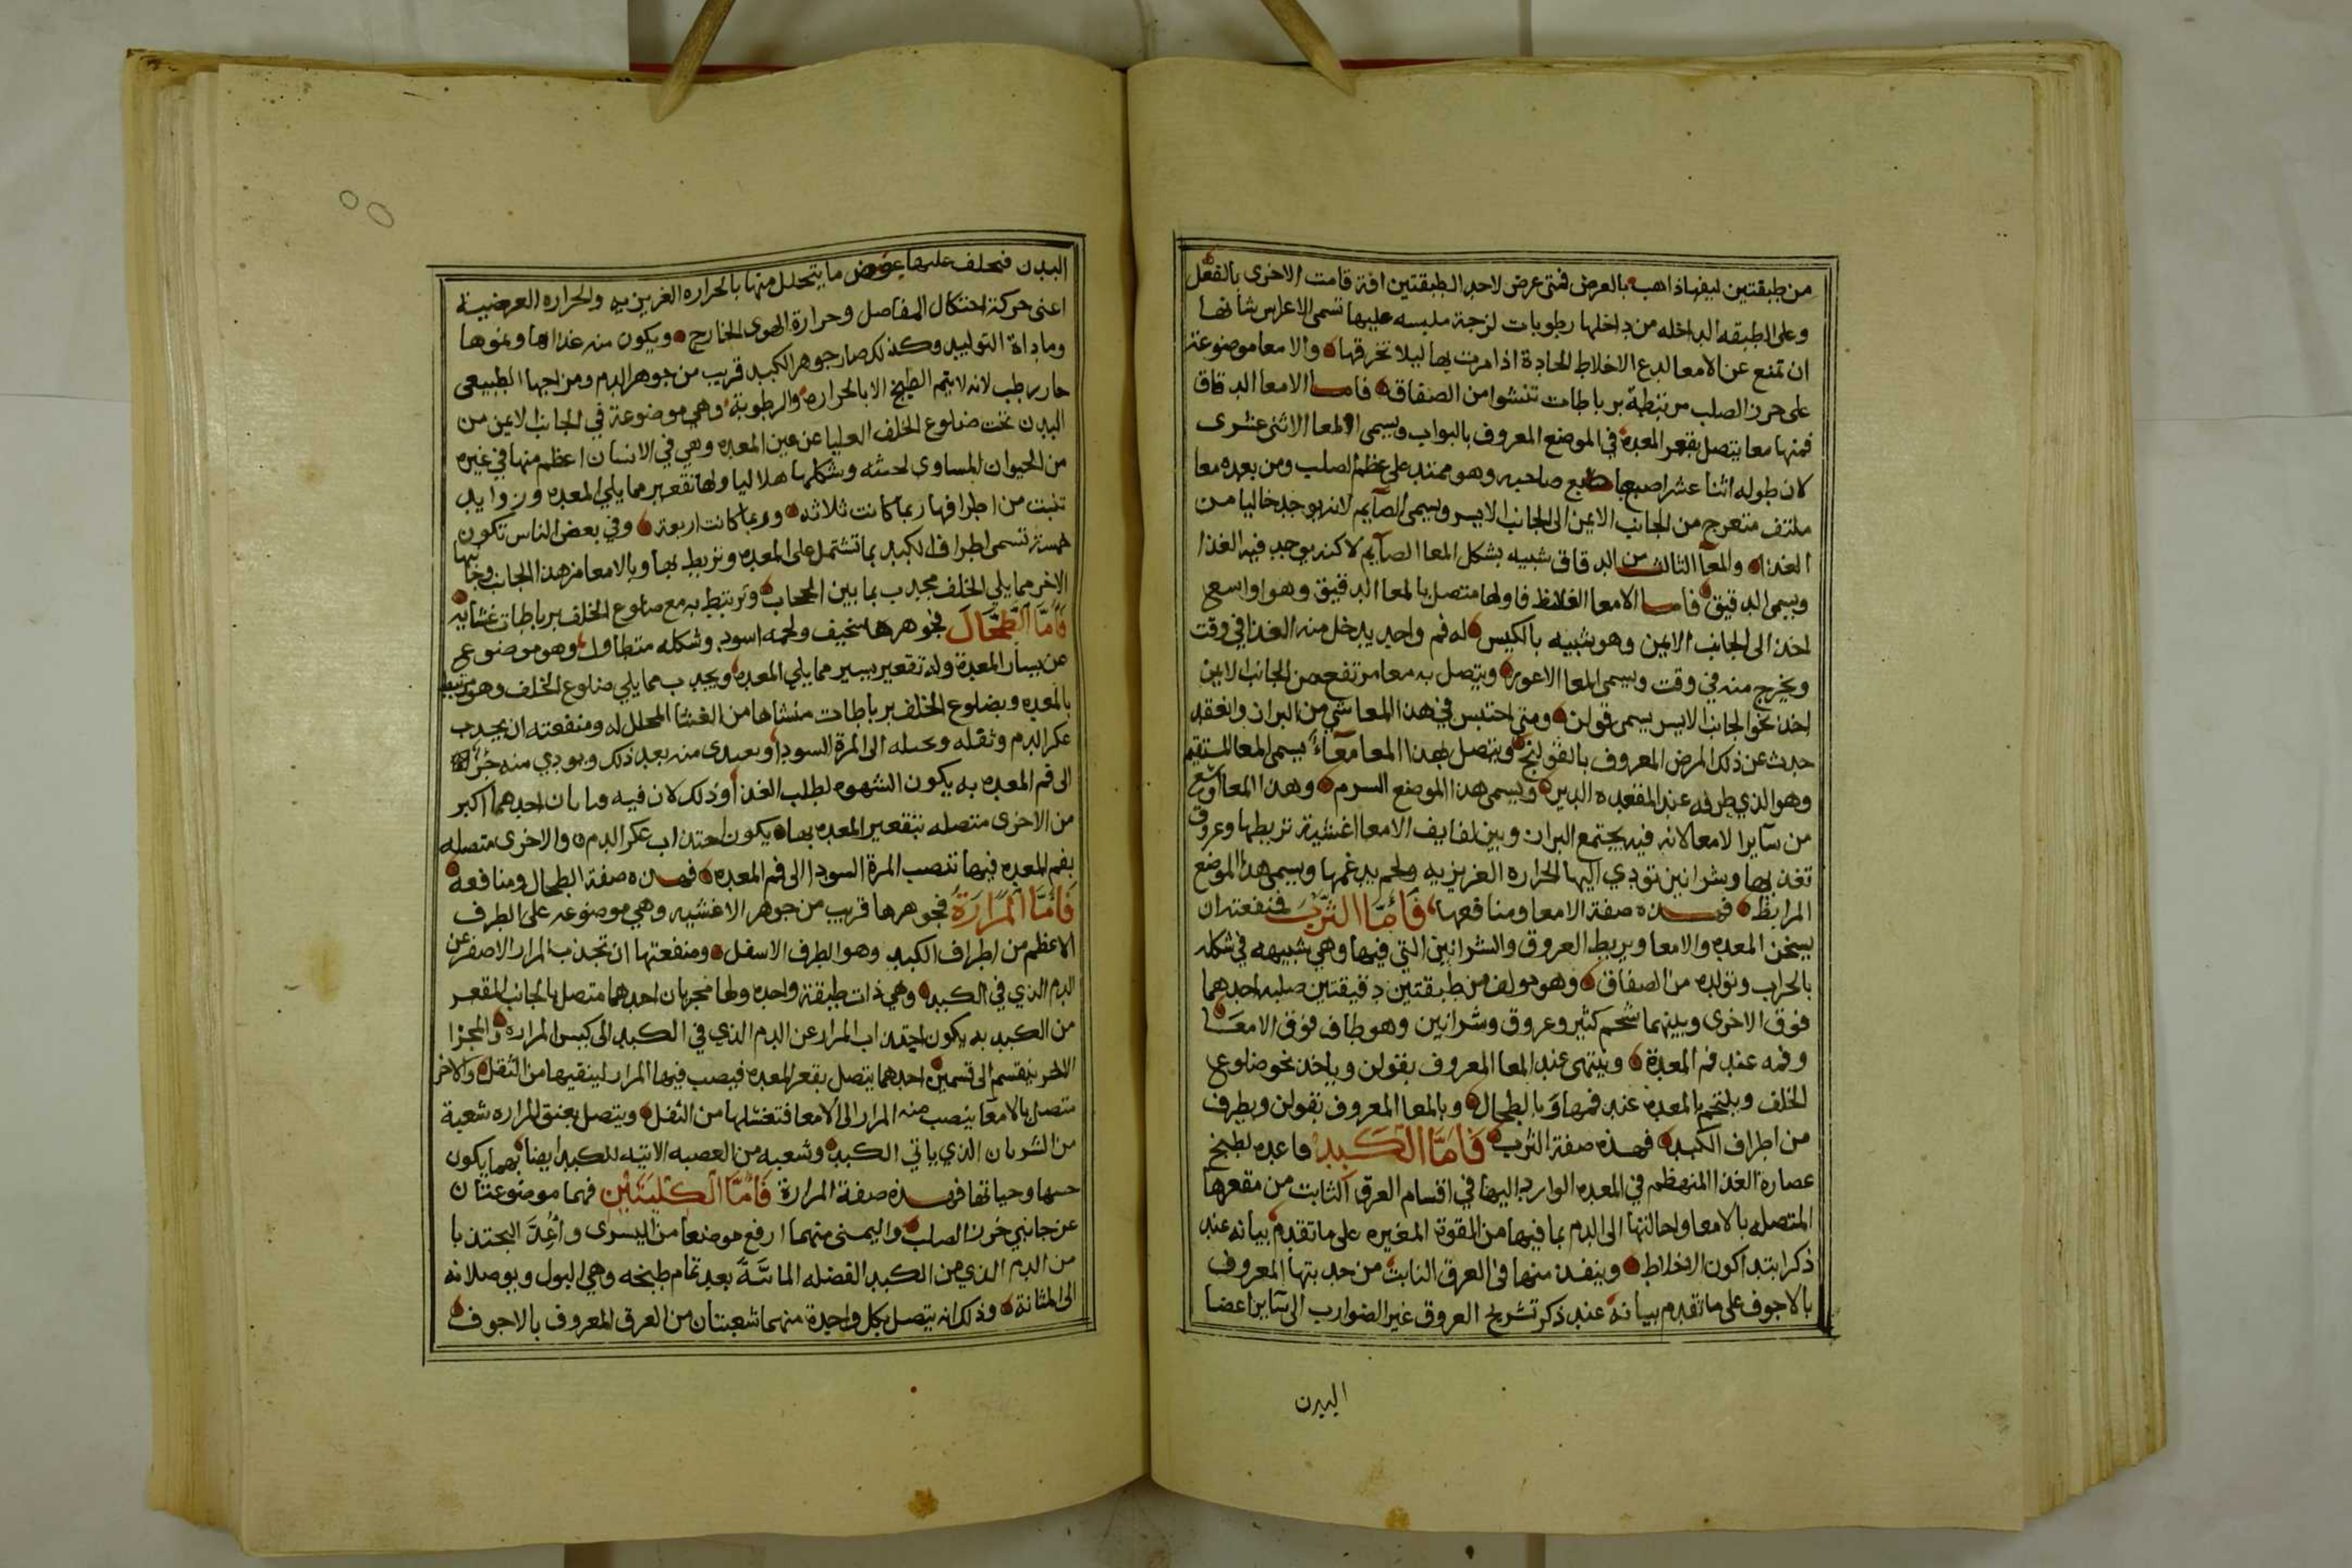 من طبقتين ليفها ذاهب بالعرض فمتى عرض لاحد الطبقتين افة قامت الاخرى بالفعل
وعلى الطبقه الداخله من داخلها رطوبات لزجة ملبسه عليها تسمى الاعراس شانها
ان تمنع عن الامعا لدع الاخلاط الحادة اذا مرت بها ليلا تخرقها والامعا موضوعة
على خرز الصلب مرتبطة برباطات تنشوا من الصفاق فاما الامعا الدقاق
فمنها معا يتصل بقعر المعده في الموضع المعروف بالبواب ويسمى المعا الاثنى عشرى
لان طوله اثنا عشر اصبعا باصابع صاحبه وهو ممتد على عظم الصلب ومن بعده معا
ملتف متعرج من الجانب الايمن الى الجانب الايسر ويسمى الصآيم لانه يوجد خاليا من
الغذا والمعآ الثالث من الدقاق شبيه بشكل المعا الصآيم لاكنه يوجد فيه الغذا
ويسمى الدقيق فاما الامعا الغلاظ فاولها متصل بالمعا الدقيق وهو اواسعى
اخذ الى الجانب الايمن وهو شبيه بالكيس له فم واحد يدخل منه الغذا في وقت
ويخرج منه في وقت ويسمى المعا الاعور ويتصل به معا مرتفع من الجانب الايمن
اخذ نحو الجانب الايسر يسمى قولن ومتى احتبس في هذا المعا شي من البراز وانعقد
حدث عن ذلك المرض المعروف بالقولنج ويتصل بهذا المعا معآء يسمى المعا المستقيم
وهو الذي طرفه عند المقعده الدبر ويسمى هذا الموضع السرم وهذا المعا اوسع
من سآير الامعا لانه فيه يجتمع البراز وبين لفايف الامعا اغشية تربطها وعروق
تغذيها وشرانين تودي اليها الحراره الغريزيه ولحم يدغمها ويسمى هذا الموضع
المرابط فهذه صفة الامعا ومنافعها فَأَمَّا الثَّرْبَ فمنفعته ان
يسخن المعده والامعا ويربط العروق والشرانين التي فيها وهي شبيهه في شكله
بالجراب وتولده من الصفاق وهو مولف من طبقتين دقيقتين صلبه احدهما
فوق الاخرى وبينهما شحم كثير وعروق وشرانين وهو طاف فوق الامعا
وفمه عند فم المعدة وينتهى عند المعا المعروف بقولن وياخذ نحو ضلوع
الخلف ويلتحم بالمعدة عند فمها وبالطحال وبالمعا المعروف بقولن وبطرف
من اطراف الكبد فهذه صفة الثرب فَامَّا الكَبِد فاعده لطبخ
عصارة الغذا المنهظم في المعده الوارد اليها في اقسام العرق الثابت من مقعرها
المتصله بالامعا واحالتها الى الدم بما فيها من القوة المغيره على ما تقدم بيانه عند
ذكر ابتدا كون الاخلاط وينفذ منها في العرق النابت من حدبتها المعروف
بالاجوف على ما تقدم بيانه عند ذكر تشريح العروق غير الضوارب الى سآير اعضا
البدن
البدن فتخلف عليها عوض ما يتحلل منها بالحراره الغريزيه والحراره العرضية
اعنى حركة احتكال المفاصل وحرارة الهوى الخارج ويكون منه غذاوها ونموها
ومادة التوليد وكذلك صار جوهر الكبد قريب من جوهر الدم ومزاجها الطبيعى
حار رطب لانه لا يتم الطبخ الا بالحراره والرطوبة وهي موضوعة في الجانب الايمن من
البدن تحت ضلوع الخلف العليا عن يمين المعده وهي في الانسان اعظم منها في غيره
من الحيوان المساوى لجثته وشكلها هلاليا ولها تقعير مما يلي المعده وزوايد
تنبت من اطرافها ربما كانت ثلاثه وربما كانت اربعة وفي بعض الناس تكون
خمسة تسمى اطراف الكبد بما تشتمل على المعده وتربط بها وبالامعا من هذا الجانب وجانبها
الاخر مما يلي الخلف محدب بما بين الحجاب وترتبط به مع ضلوع الخلف برباطات غشايه
فَأَمَّا الطِّحَال فجوهرها سخيف ولحمه اسود وشكله متطاول وهو موضوع
عن يسار المعدة وله تقعير يسير مما يلي المعده ويحدب مما يلي ضلوع الخلف وهو مرتبط
بالمعده وبضلوع الخلف برباطات منشاها من الغشا المحلل له ومنفعته ان يجذب
عكر الدم وثقله ويحيله الى المرة السودا ويغتدى منه بعد ذلك ويودي منه جزا
الى فم المعده به يكون الشهوه لطلب الغذا وذلك لان فيه مجريان احدهما اكبر
من الاخرى متصله بتقعير المعده بها يكون اجتذاب عكر الدم والاخرى متصله
بفم المعده فيها تنصب المرة السودا الى فم المعده فهذه صفة الطحال ومنافعه
فَأَمَّا المَرَارَةُ فجوهرها قريب من جوهر الاغشيه وهي موضوعه على الطرف
الاعظم من اطراف الكبد وهو الطرف الاسفل ومنفعتها ان تجذب المرار الاصفر عن
الدم الذي في الكبد وهي ذات طبقة واحده ولها مجريان احدهما متصل بالجانب المقعر
من الكبد به يكون اجتذاب المرار عن الدم الذي في الكبد الى كيس المراره والمجرا
الاخر ينقسم الى قسمين احدهما يتصل بقعر المعده فيصب فيها المرار لينقيها من الثقل والاخر
متصل بالامعا ينصب منه المرار الى الامعا فتغسلها من الثفل ويتصل بعنق المراره شعبة
من الشريان الذي ياتي الكبد وشعبه من العصبه الاتيه للكبد ايضا بهما يكون
حسها وحياتها فهذه صفة المرارة فَأَمَّا الكُلْيَتَيْنِ فهما موضوعتان
عن جانبي خرز الصلب واليمنى منهما ارفع موضعا من اليسرى واُعِدَّ اليجتذبا
من الدم الذي من الكبد الفضله المائيَّة بعد تمام طبخه وهي البول ويوصلانه
الى المثانة وذلك انه يتصل بكل واحدة منهما شعبتان من العرق المعروف بالاجوف